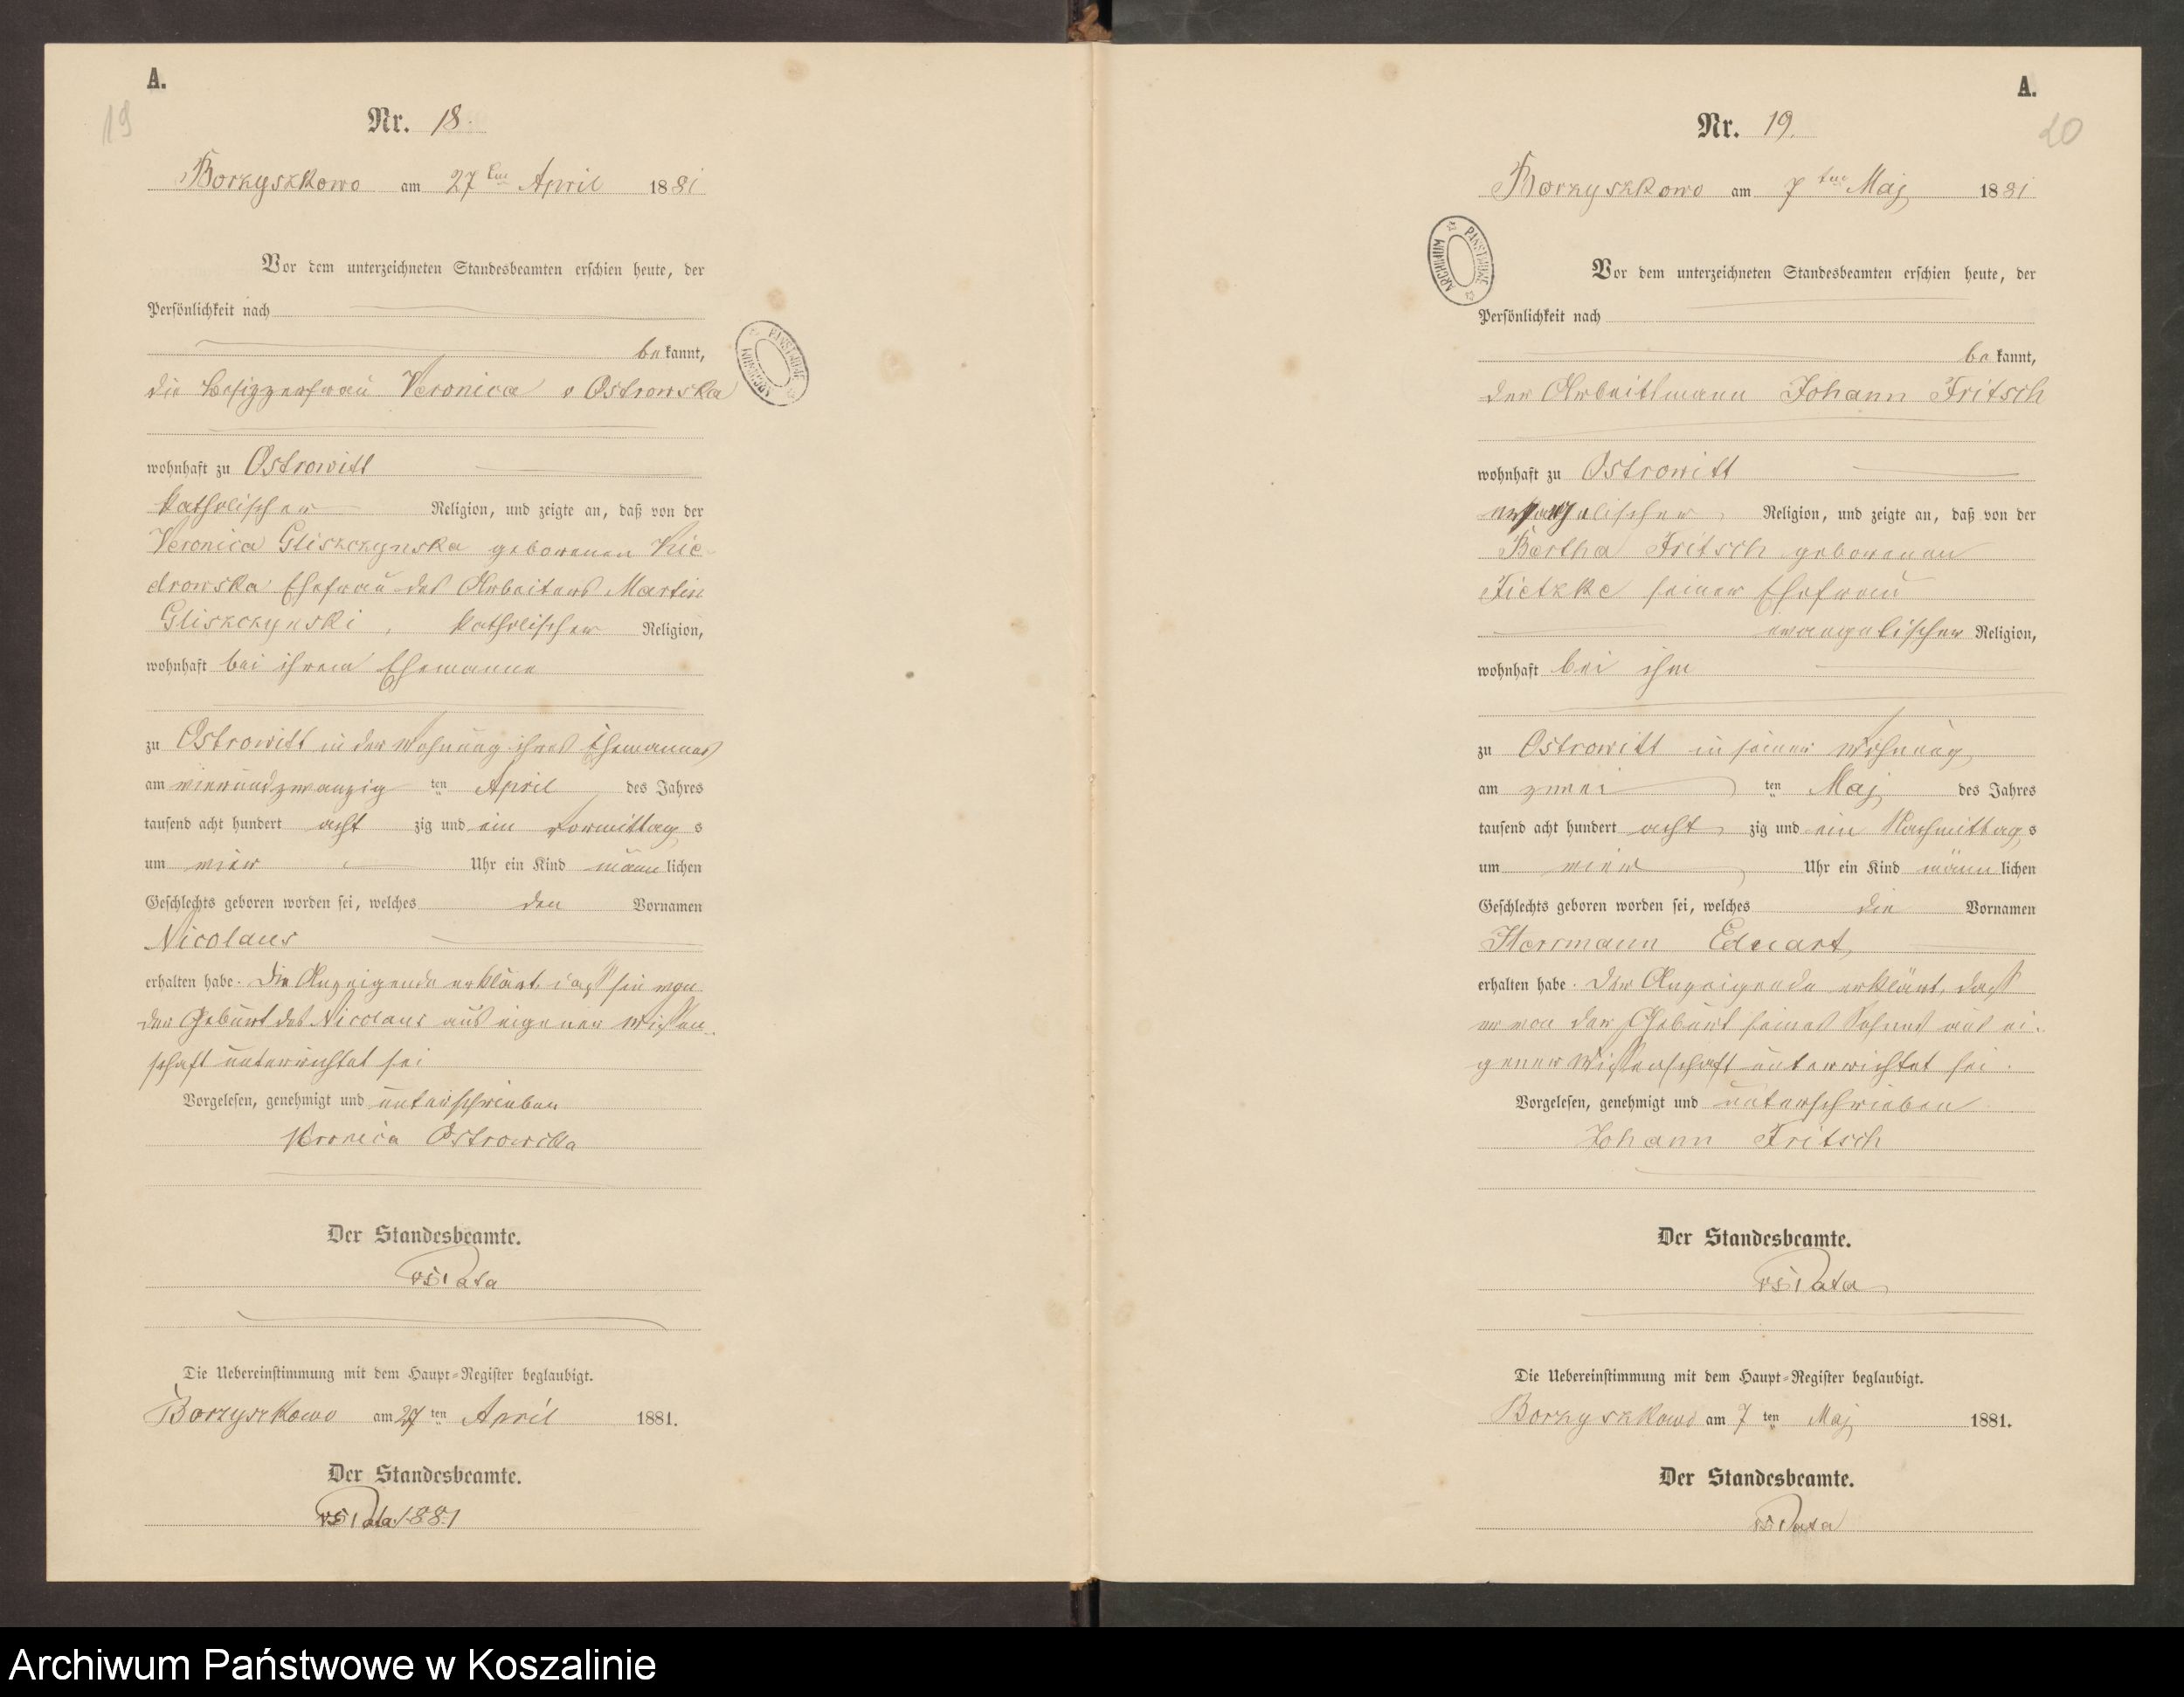 A.
19
Nr. 18.
Borzyszkowo am 27ten April 1881
Vor dem unterzeichneten Standesbeamten erschien heute, der
Persönlichkeit nach
bekannt,
die Besitzerfrau Veronica v Ostrowska
wohnhaft zu Ostrowitt
katholischer Religion, und zeigte an, daß von der
Veronica Gliszczynska geborenen Kie-
drowska Ehefrau des Arbeiters Martin
Gliszczynski, katholischer Religion,
wohnhaft bei ihrem Ehemanne
zu Ostrowitt in der Wohnung ihres Ehemannes
am vierundzwanzig ten April des Jahres
tausend acht hundert acht zig und ein Vormittag s
um vier Uhr ein Kind männlichen
Geschlechts geboren worden sei, welches den Vornamen
Nicolaus
erhalten habe. Die Anzeigende erklärt, daß sie von
der Geburt des Nicolaus aus eigener Wissen-
schaft unterrichtet sei
Vorgelesen, genehmigt und unterschrieben
Veronica Ostrowska
Der Standesbeamte.
Die Uebereinstimmung mit dem Haupt-Register beglaubigt.
Borzyszkowo am 27ten April 1881.
Der Standesbeamte.
1881
A.
20
Nr. 19.
Borzyszkowo am 7ten Maj 1881
ARCHIWUM PAŃSTWOWE
Vor dem unterzeichneten Standesbeamten erschien heute, der
Persönlichkeit nach
bekannt,
der Arbeitsmann Johann Fritsch
wohnhaft zu Ostrowitt
evangelischer Religion, und zeigte an, daß von der
Bertha Fritsch geborenen
Tietzke seiner Ehefrau
evangelischer Religion,
wohnhaft bei ihm
zu Ostrowitt in seiner Wohnung
am zwei ten Maj des Jahres
tausend acht hundert acht zig und ein Nachmittag s
um vier Uhr ein Kind männlichen
Geschlechts geboren worden sei, welches die Vornamen
Herrmann Eduart
erhalten habe. Der Anzeigende erklärt, daß
er von der Geburt seines Sohnes aus ei-
gener Wissenschaft unterrichtet sei.
Vorgelesen, genehmigt und unterschrieben
Johann Fritsch
Der Standesbeamte.
Die Uebereinstimmung mit dem Haupt-Register beglaubigt.
Borzyszkowo am 7ten Maj 1881.
Der Standesbeamte.
Archiwum Państwowe w Koszalinie